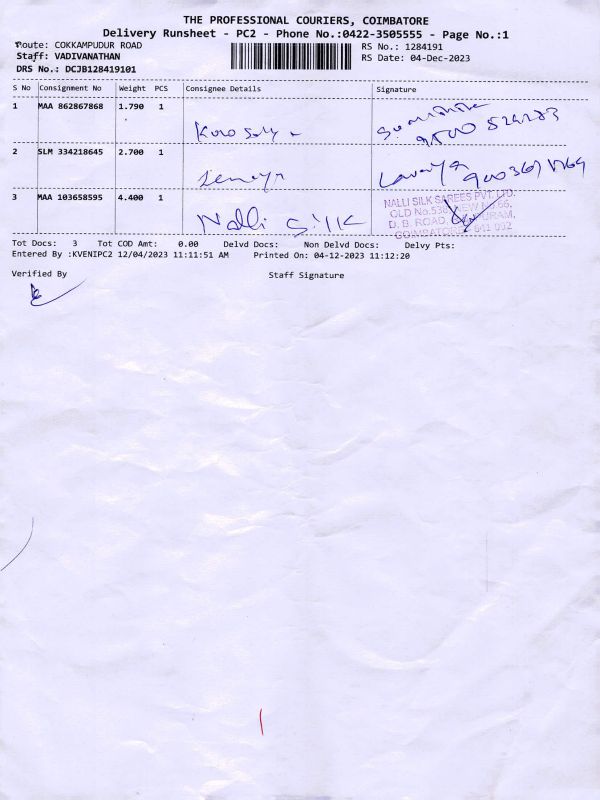 THE PROFESSIONAL COURIERS, COIMBATORE
Delivery Runsheet - PC2 - Phone No.:0422-3505555 - Page No.:1
Route: COKKAMPUDUR ROAD
RS No.: 1284191
Staff: VADIVANATHAN
RS Date: 04-Dec-2023
DRS No.: DCJB128419101
S No Consignment No Weight PCS Consignee Details Signature
1 MAA 862867868 1.790 1
2 SLM 334218645 2.700 1
Lavanya
3 MAA 103658595 4.400 1
Nalli Silk
NALLI SILK SAREES PVT. LTD.
OLD No.538, NEW No.66,
D. B. ROAD,
COIMBATORE - 641 002
Tot Docs: 3 Tot COD Amt: 0.00 Delvd Docs: Non Delvd Docs: Delvy Pts:
Entered By :KVENIPC2 12/04/2023 11:11:51 AM Printed On: 04-12-2023 11:12:20
Verified By Staff Signature